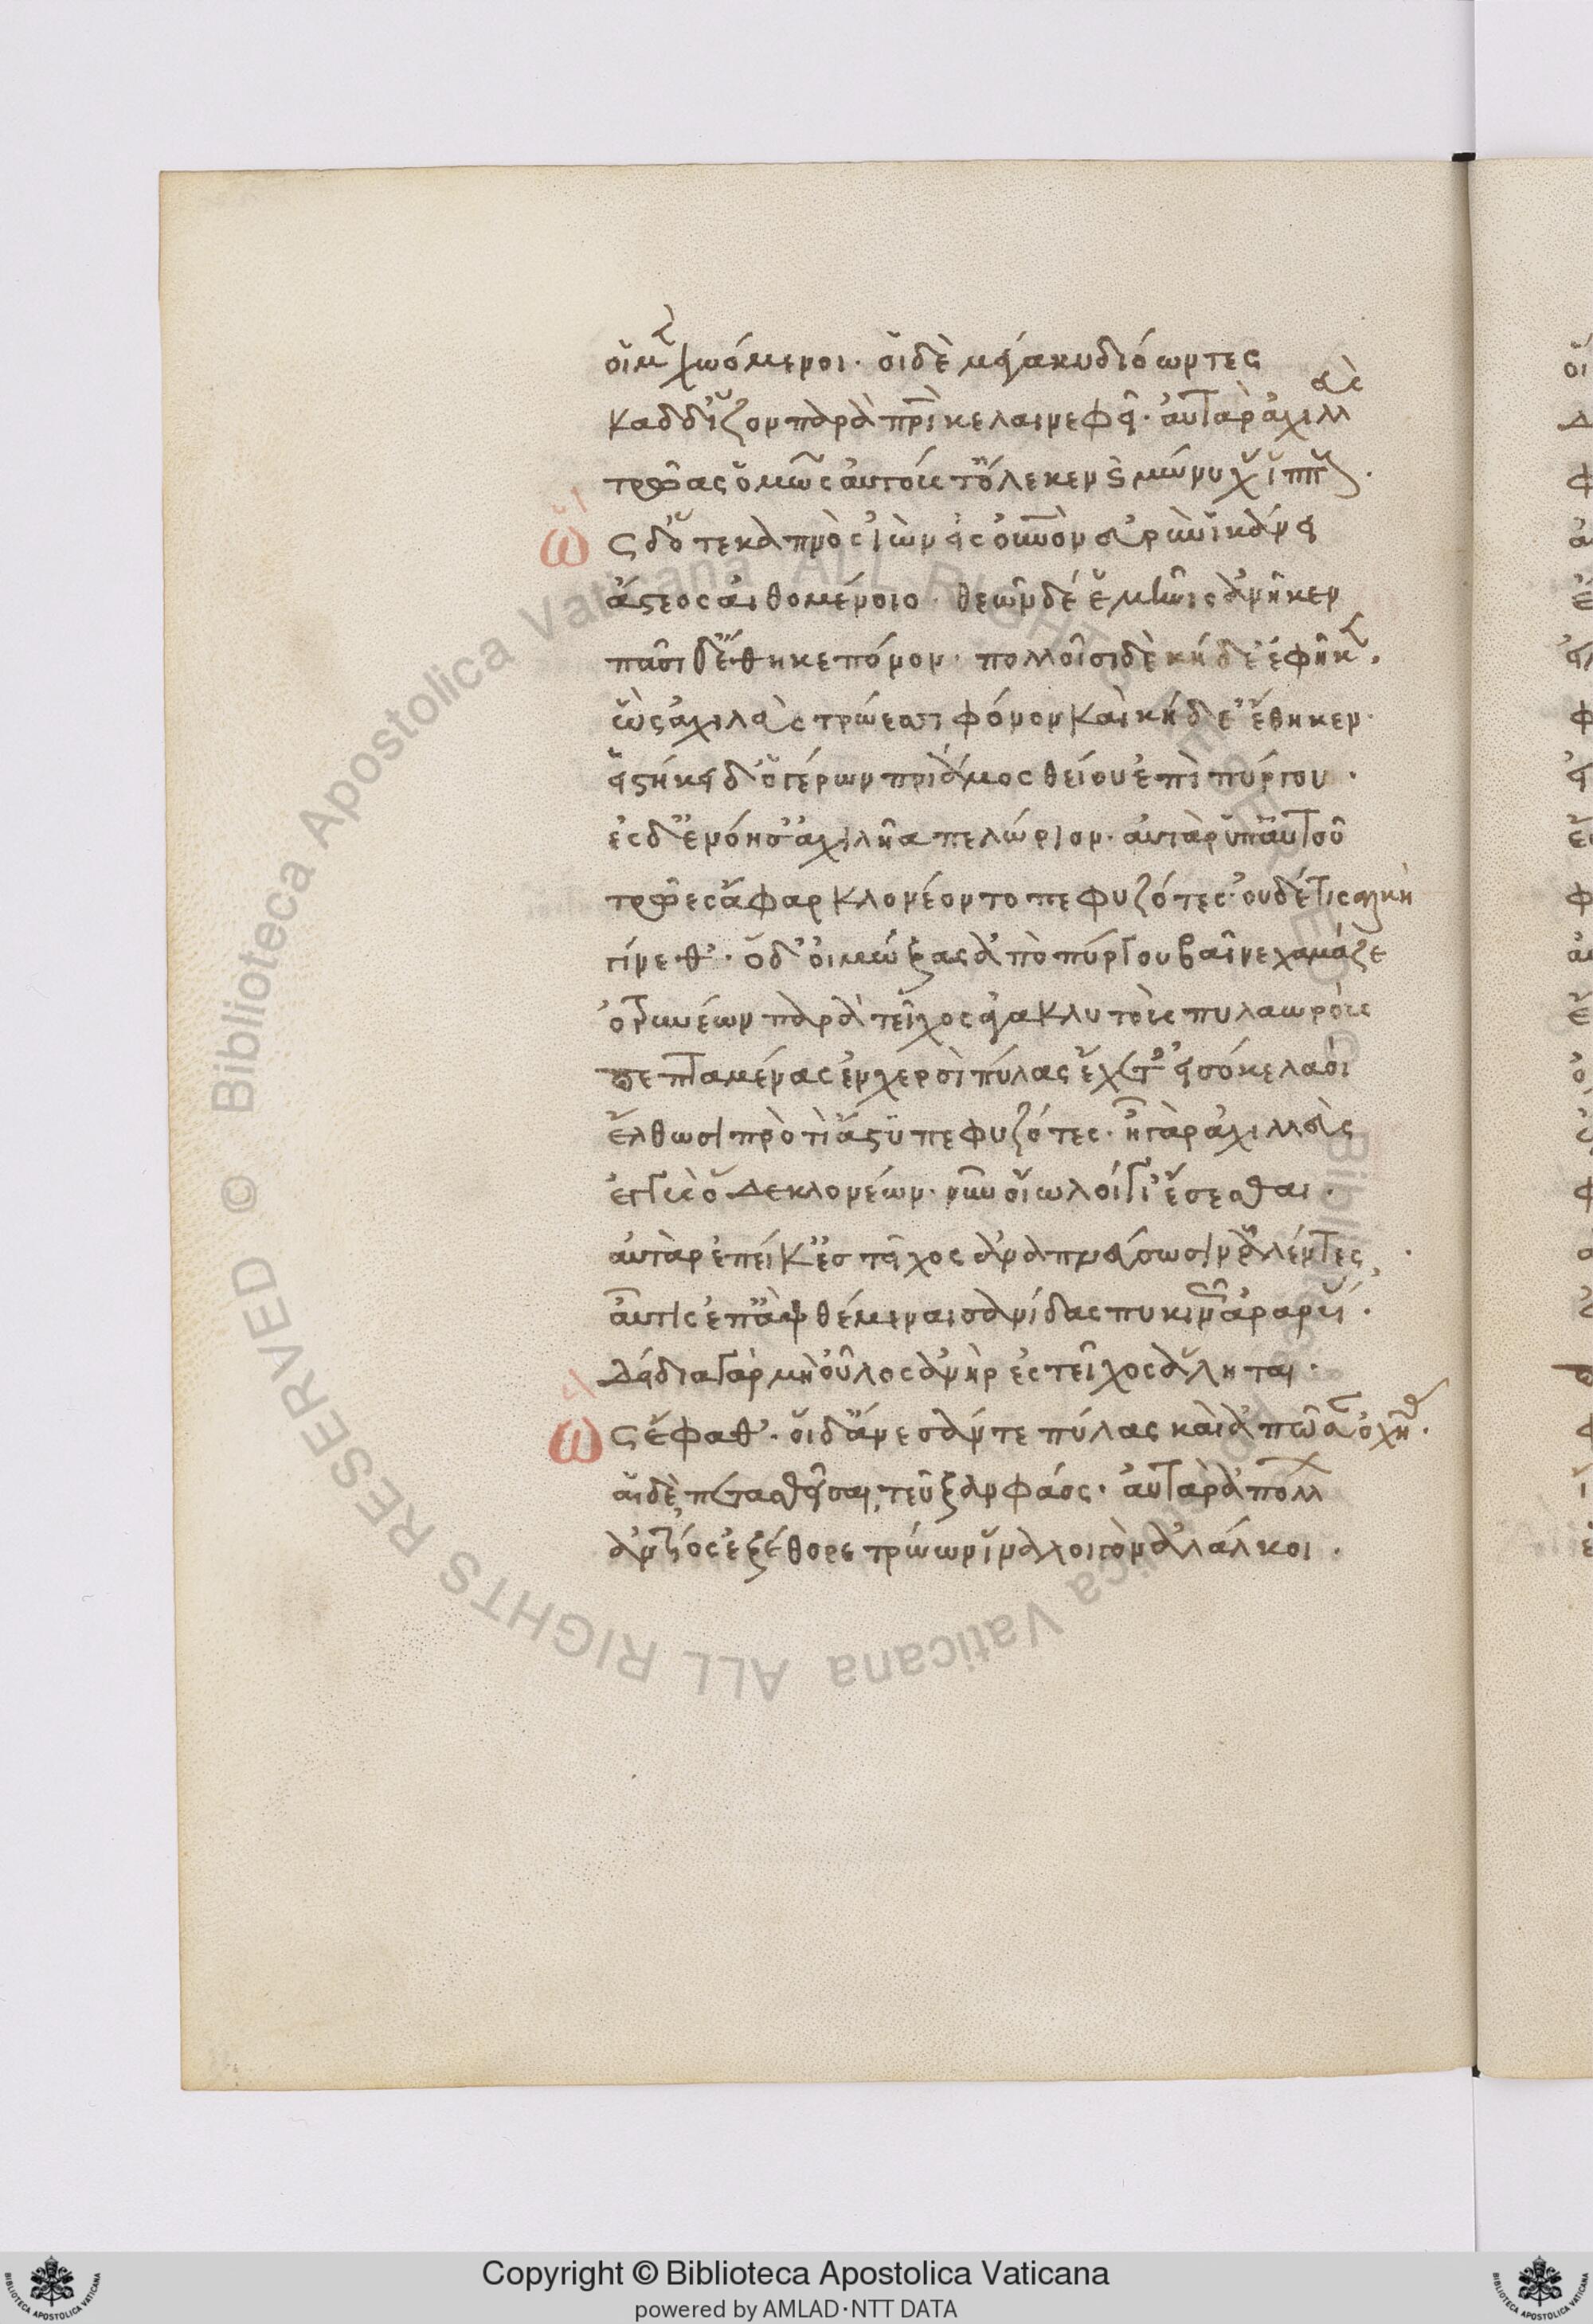 οἱ μὲν χωόμενοι· οἱ δὲ μέγα κυδιόωντες
καδδ' ἷζον παρὰ πατρὶ κελαινεφεῖ· αὐτὰρ ἀχιλλεὺς
τρῶας ὁμῶς αὐτούς τ' ὄλεκεν καὶ μώνυχας ἵππους.
ὡς δ' ὅτε καπνὸς ἰὼν εἰς οὐρανὸν εὐρὺν ἱκάνει
ἄστεος αἰθομένοιο· θεῶν δέ ἑ μῆνις ἀνῆκεν
πᾶσι δ' ἔθηκε πόνον· πολλοῖσι δὲ κήδε' ἐφῆκεν.
ὡς ἀχιλεὺς τρώεσσι πόνον καὶ κήδε' ἔθηκεν·
εἱστήκει δ' ὁ γέρων πρίαμος θείου ἐπὶ πύργου·
ἐς δ' ἐνόησ' ἀχιλῆα πελώριον· αὐτὰρ ὑπ' αὐτοῦ
τρῶες ἄφαρ κλονέοντο πεφυζότες· οὐδέ τις ἀλκὴ
γίνεθ'· ὁ δ' οἰμώξας ἀπὸ πύργου βαῖνε χαμάζε
ὀτρυνέων παρὰ τεῖχος ἀγακλυτοὺς πυλαωρούς
πεπταμένας ἐν χερσὶ πύλας ἔχετ' εἰσόκε λαοὶ
ἔλθωσι προτὶ ἄστυ πεφυζότες· ἦ γὰρ ἀχιλλεὺς
ἐγγὺς ὅδε κλονέων· νῦν οἴω λοίγι' ἔσεσθαι·
αὐτὰρ ἐπεί κ' ἐς τεῖχος ἀναπνεύσωσιν ἀλέντες,
αὖτις ἐπ' ἂψ θέμεναι σανίδας πυκινῶς ἀραρυίας·
δείδια γὰρ μὴ οὖλος ἀνὴρ ἐς τεῖχος ἄληται·
ὣς ἔφαθ'· οἱ δ' ἄνεσάν τε πύλας καὶ ἀπῶσαν ὀχῆας·
αἱ δὲ πετασθεῖσαι, τεῦξαν φάος· αὐτὰρ ἀπόλλων
ἀντίος ἐξέθορε τρώων ἵνα λοιγὸν ἀλάλκοι·
Copyright © Biblioteca Apostolica Vaticana
powered by AMLAD·NTT DATA